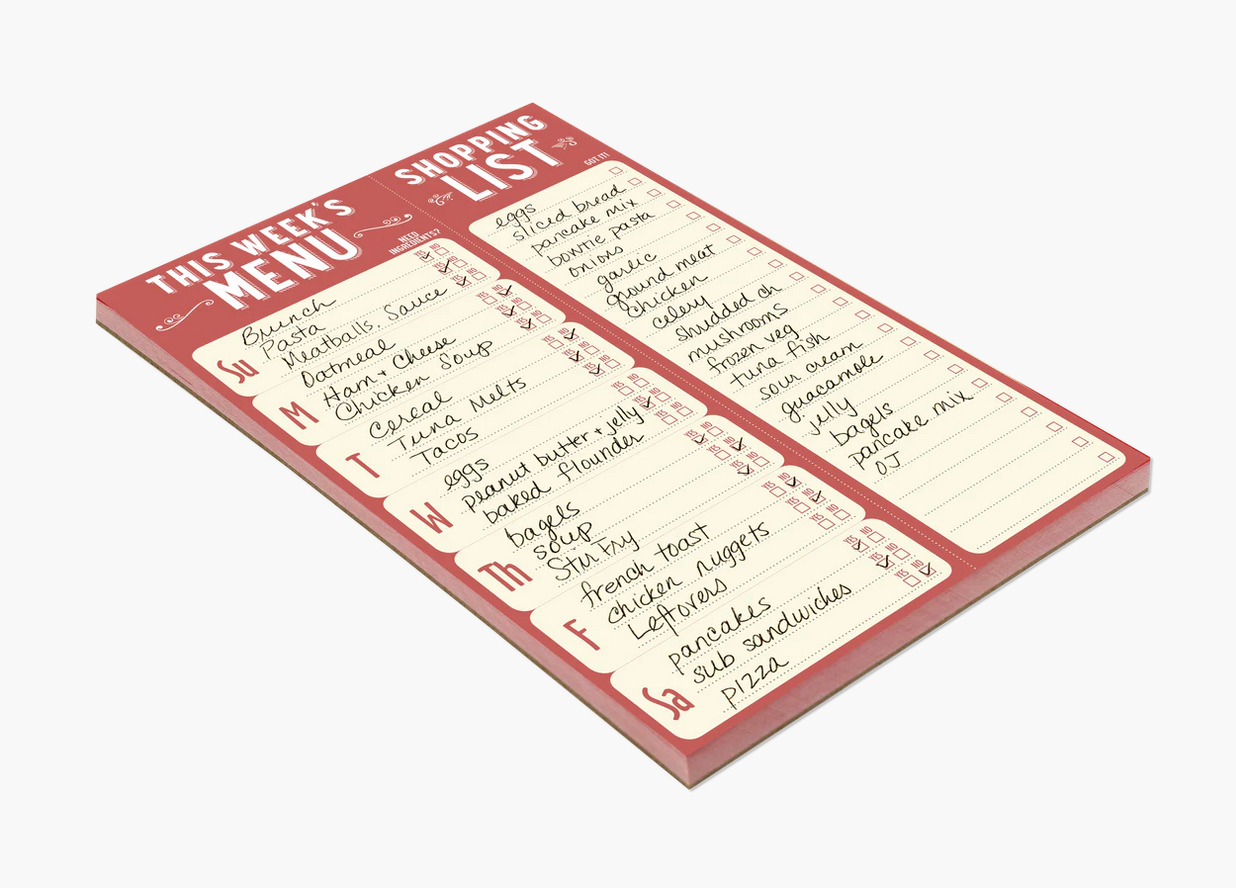 THIS WEEK'S
MENU
NEED
INGREDIENTS?
Su
Brunch
Pasta
Meatballs, Sauce
M
Oatmeal
Ham + Cheese
Chicken Soup
T
Cereal
Tuna Melts
Tacos
W
eggs
peanut butter + jelly
baked flounder
Th
bagels
soup
Stir Fry
F
french toast
chicken nuggets
Leftovers
Sa
pancakes
sub sandwiches
pizza
SHOPPING
LIST
GOT IT!
eggs
sliced bread
pancake mix
bowtie pasta
onions
garlic
ground meat
Chicken
celery
shudded ch
mushrooms
frozen veg
tuna fish
sour cream
guacamole
jelly
bagels
pancake mix
OJ